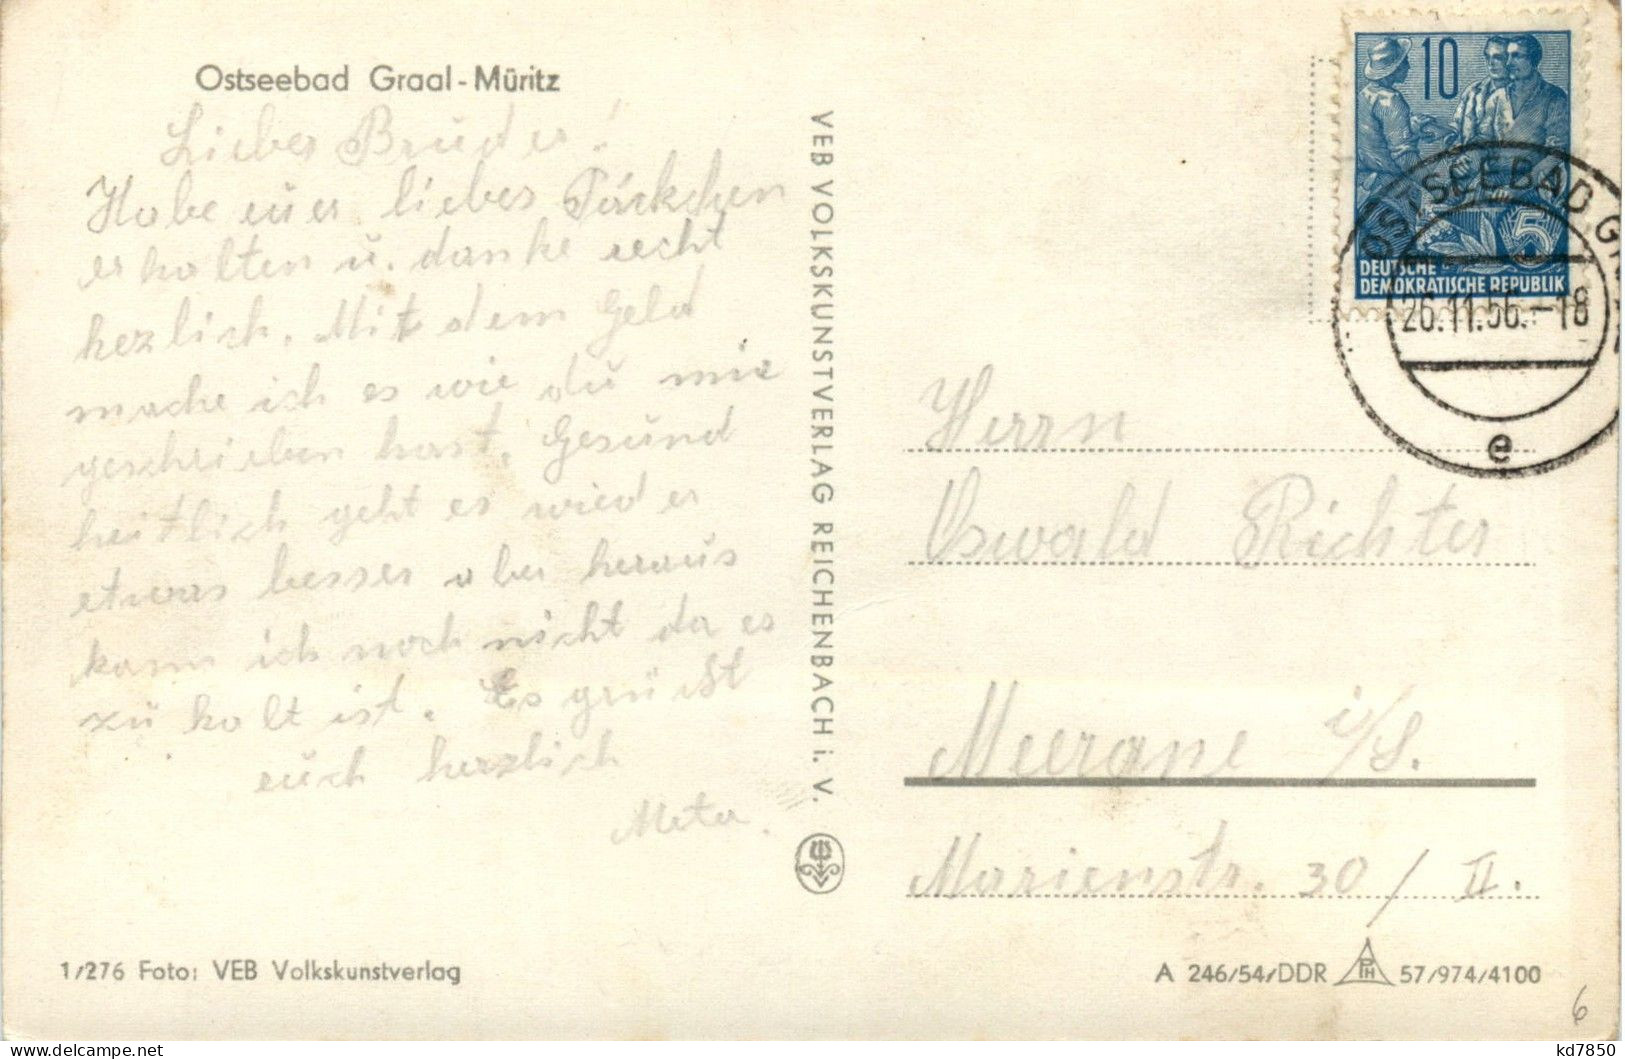 Ostseebad Graal-Müritz
Lieber Bruder!
Habe euer liebes Päckchen
erhalten u. danke recht
hezlich. Mit dem Geld
mache ich es wie du mir
geschrieben hast. Gesund
heitlich geht es wieder
etwas besser aber heraus
kann ich noch nicht da es
zu kalt ist. Es grüßt
euch herzlich
Meta.
1/276 Foto: VEB Volkskunstverlag
VEB VOLKSKUNSTVERLAG REICHENBACH i. V.
10
5
DEUTSCHE
DEMOKRATISCHE REPUBLIK
OSTSEEBAD
26.11.56.-18
e
Herrn
Oswald Richter
Meerane i/S.
Marienstr. 30 / II.
A 246/54/DDR PH 57/974/4100
6
kd7850